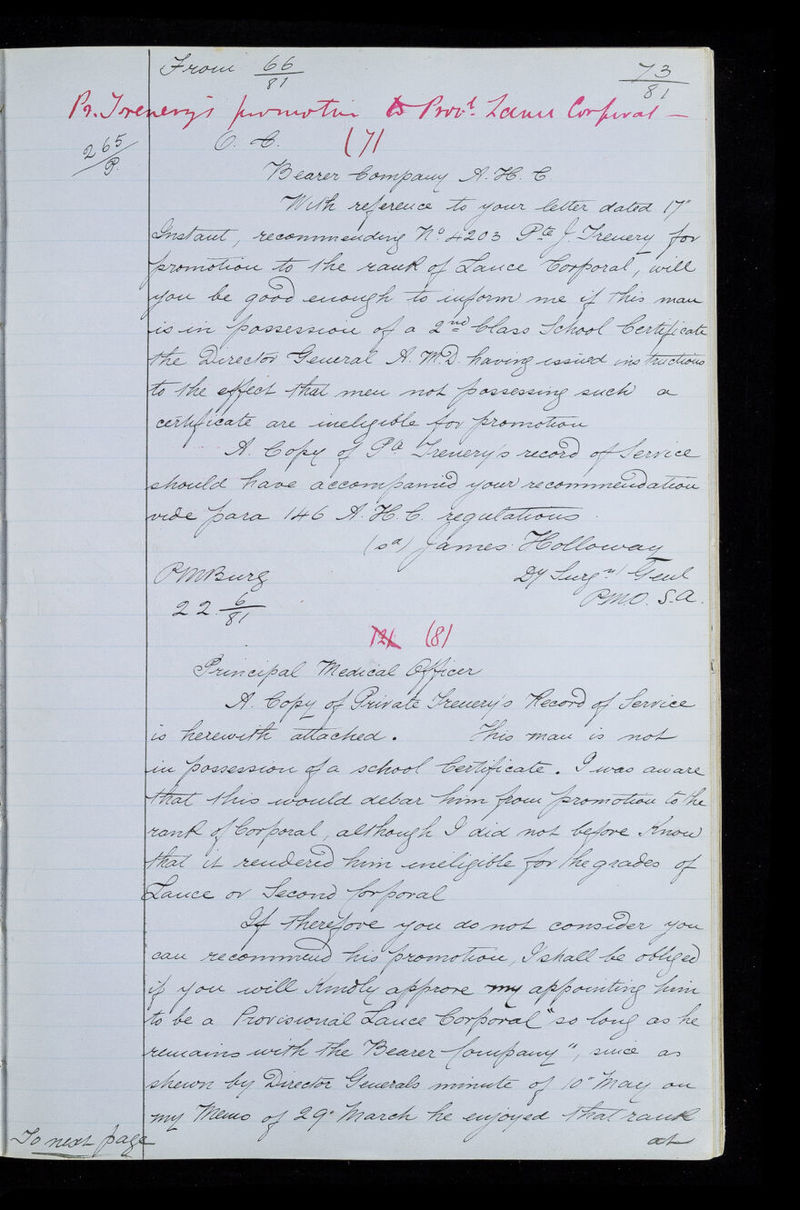 From 66/81
73/81
Pr. Trenery's promotion to Prov.l Lance Corporal —
265/P.
O. C. (7)
Bearer Company A. H. C
With reference to your letter dated 17"
Instant, recommending No 4203 Pte J. Trenery for
promotion to the rank of Lance Corporal, will
you be good enough to inform me if this man
is in possession of a 2nd Class School Certificate
the Director General A. M. D. having issued instructions
to the effect that men not possessing such a
certificate are ineligible for promotion
A Copy of Pte Trenery's record of Service
should have accompanied your recommendation
vide para 146 A. H. C. regulations
(sd) James Holloway
PMBurg
Dy Surgn Genl
22.6/81
P.M.O. S.A.
(8)
Principal Medical Officer
A. Copy of Private Trenery's Record of Service
is herewith attached. This man is not
in possession of a school Certificate. I was aware
that this would debar him from promotion to the
rank of Corporal, although I did not before know
that it rendered him ineligible for the grades of
Lance or Second Corporal
If therefore you do not consider you
can recommend his promotion, I shall be obliged
if you will kindly approve my appointing him
to be a Provisional Lance Corporal "so long as he
remains with the Bearer Company", since as
shewn by Director Generals minute of 10" May on
my Memo of 29" March he enjoyed that rank
To next page
at